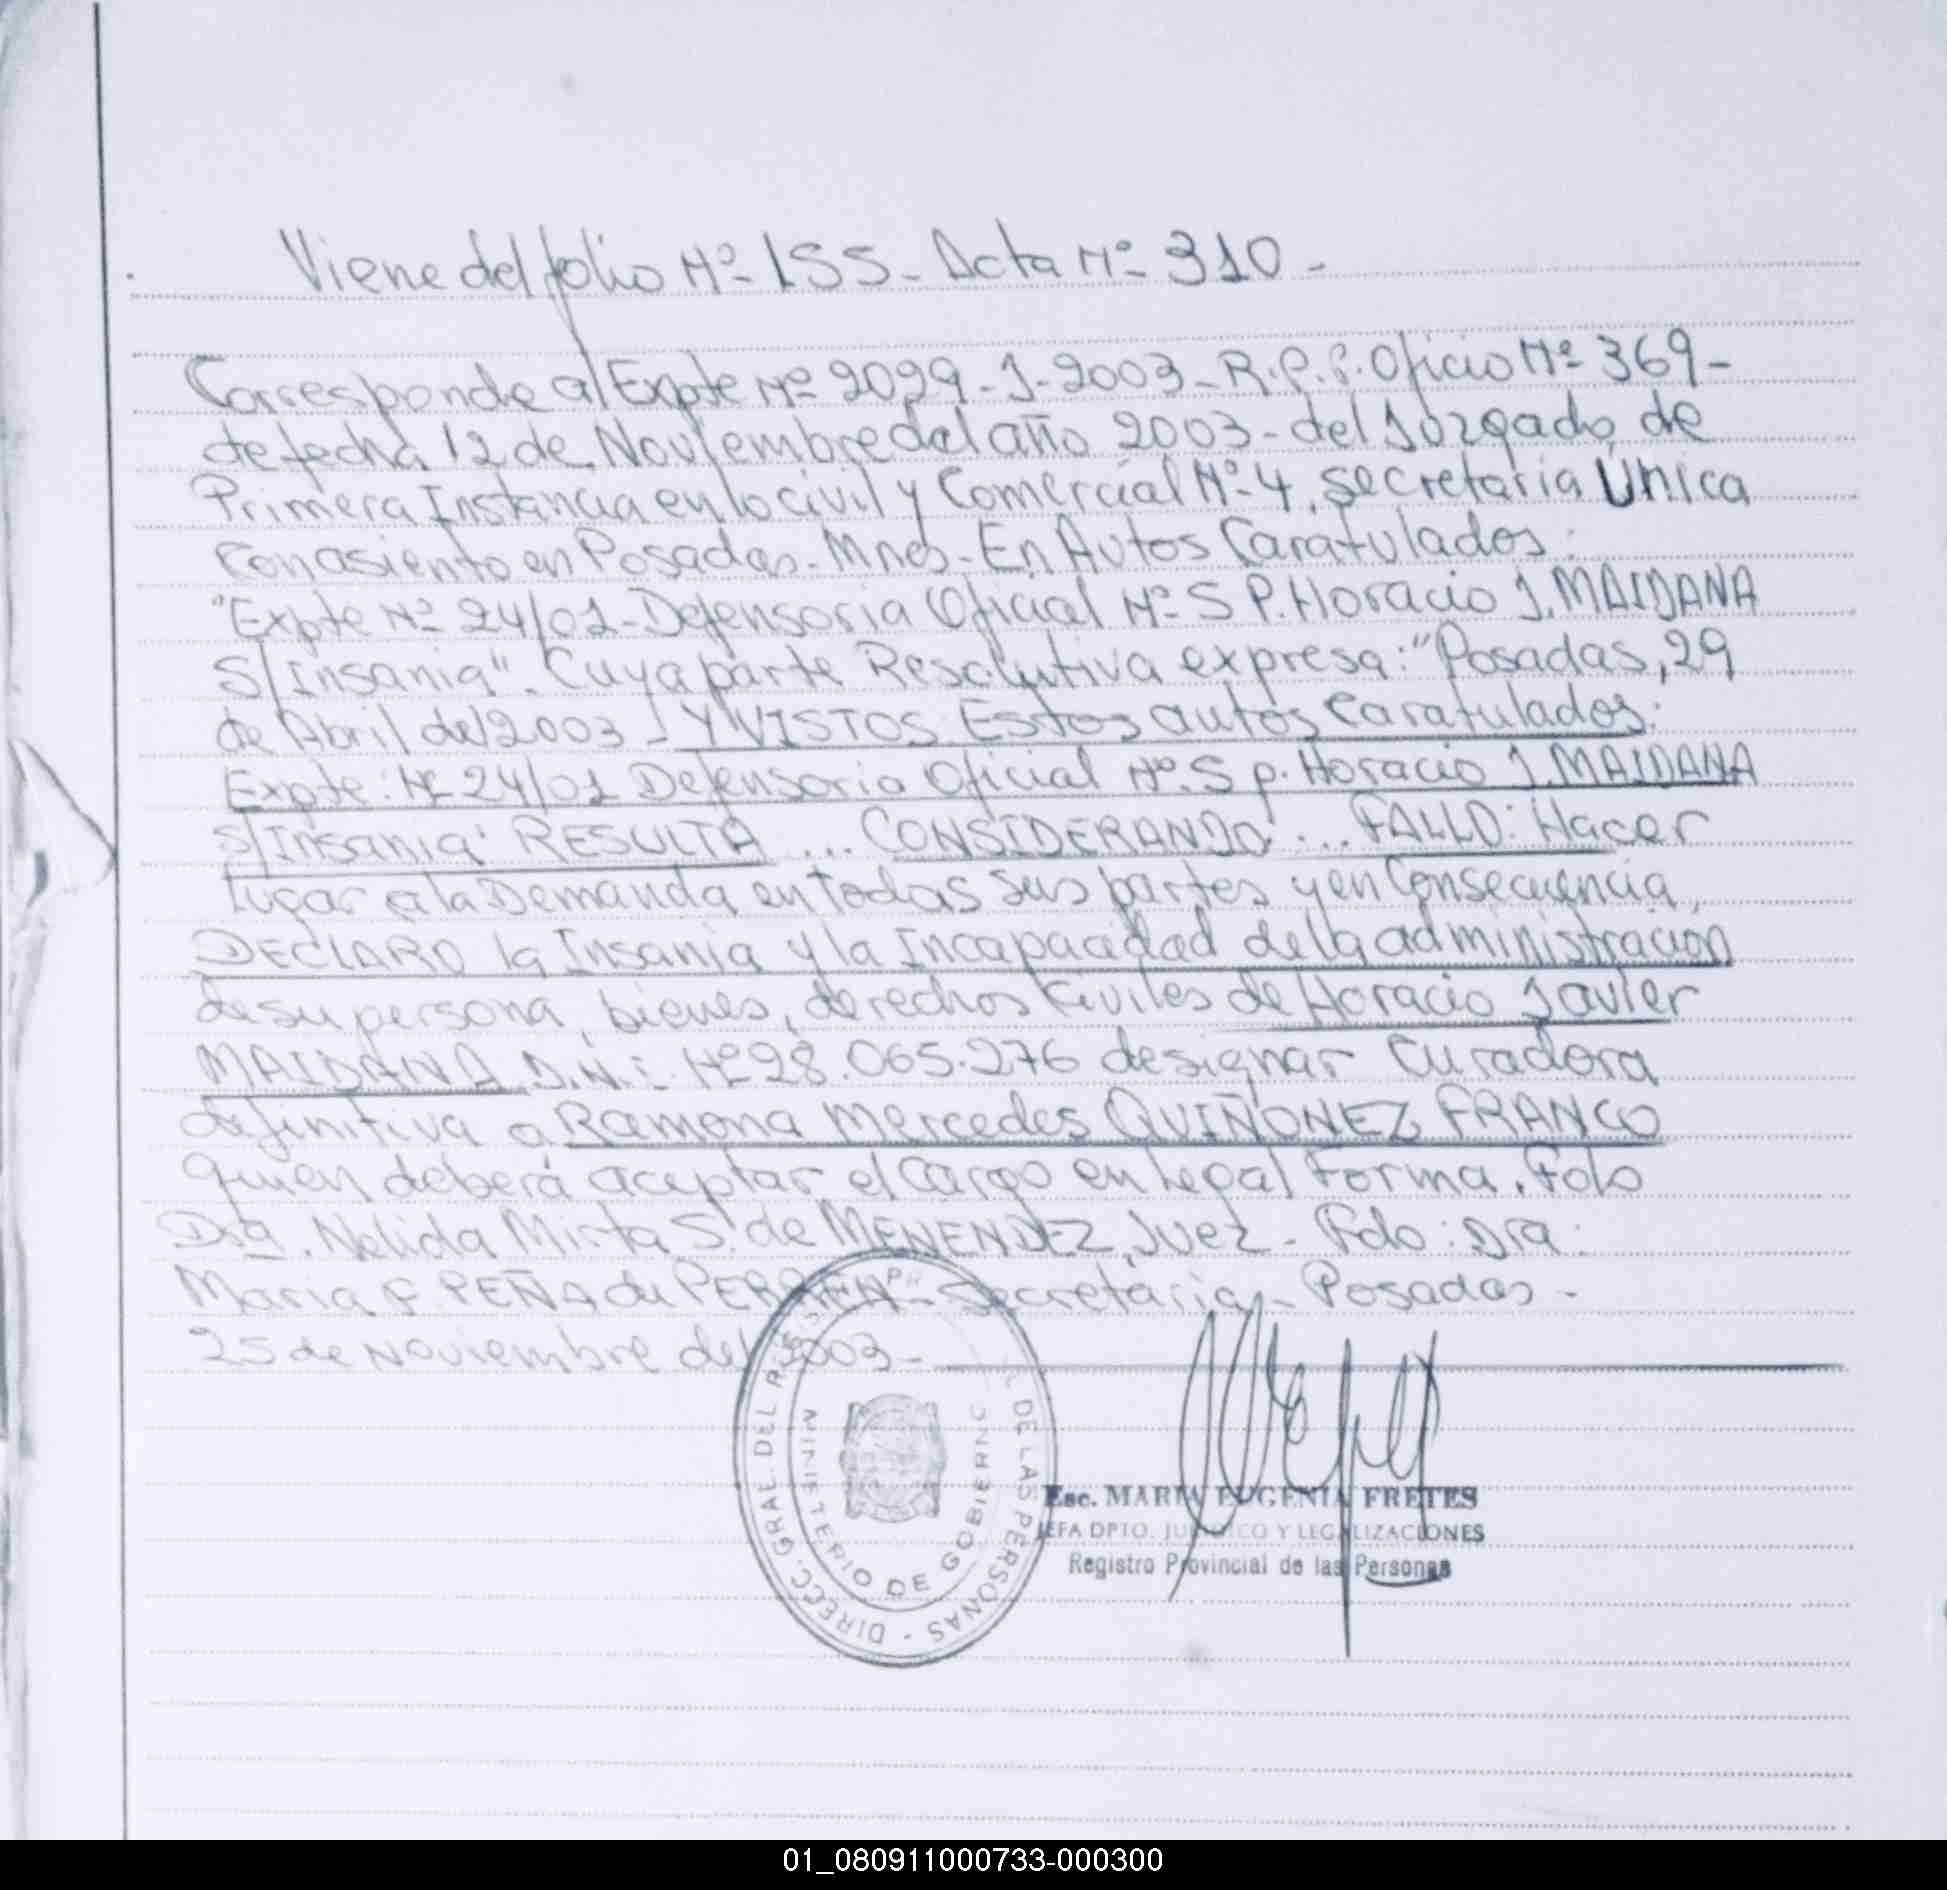 Viene del folio Nº 155 - Acta Nº 310 -
Corresponde al Expte Nº 2029 - J - 2003 - R.P.P. Oficio Nº 369 -
de fecha 12 de Noviembre del año 2003 - del Juzgado de
Primera Instancia en lo civil y Comercial Nº 4, secretaria Única
con asiento en Posadas - Mnes - En Autos Caratulados:
"Expte Nº 24/01 - Defensoria Oficial Nº 5 P. Horacio J. MAIDANA
S/Insania". Cuya parte Resolutiva expresa: "Posadas, 29
de Abril del 2003 - Y VISTOS Estos autos Caratulados:
Expte: Nº 24/01 Defensoria Oficial Nº 5 p. Horacio J. MAIDANA
S/Insania" RESULTA ... CONSIDERANDO ... FALLO: Hacer
lugar a la Demanda en todas sus partes y en Consecuencia,
DECLARO la Insania y la Incapacidad de la administración
de su persona, bienes, derechos Civiles de Horacio Javier
MAIDANA D.N.I. Nº 28.065.276 designar Curadora
definitiva a Ramona Mercedes QUIÑONEZ FRANCO
quien deberá aceptar el cargo en Legal Forma. Fdo
Dra. Nelida Mirta S. de MENENDEZ, Juez - Fdo: Dra:
Maria F. PEÑA de - Secretaria - Posadas -
25 de Noviembre del 2003 -
DIRECC. GRAE. DEL DE LAS PERSONAS -
MINISTERIO DE GOBIERNO
Esc. MARIA EUGENIA FRETES
JEFA DPTO. JURIDICO Y LEGALIZACIONES
Registro Provincial de las Personas
01_080911000733-000300